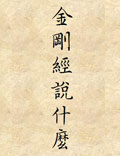 金剛經說什麼